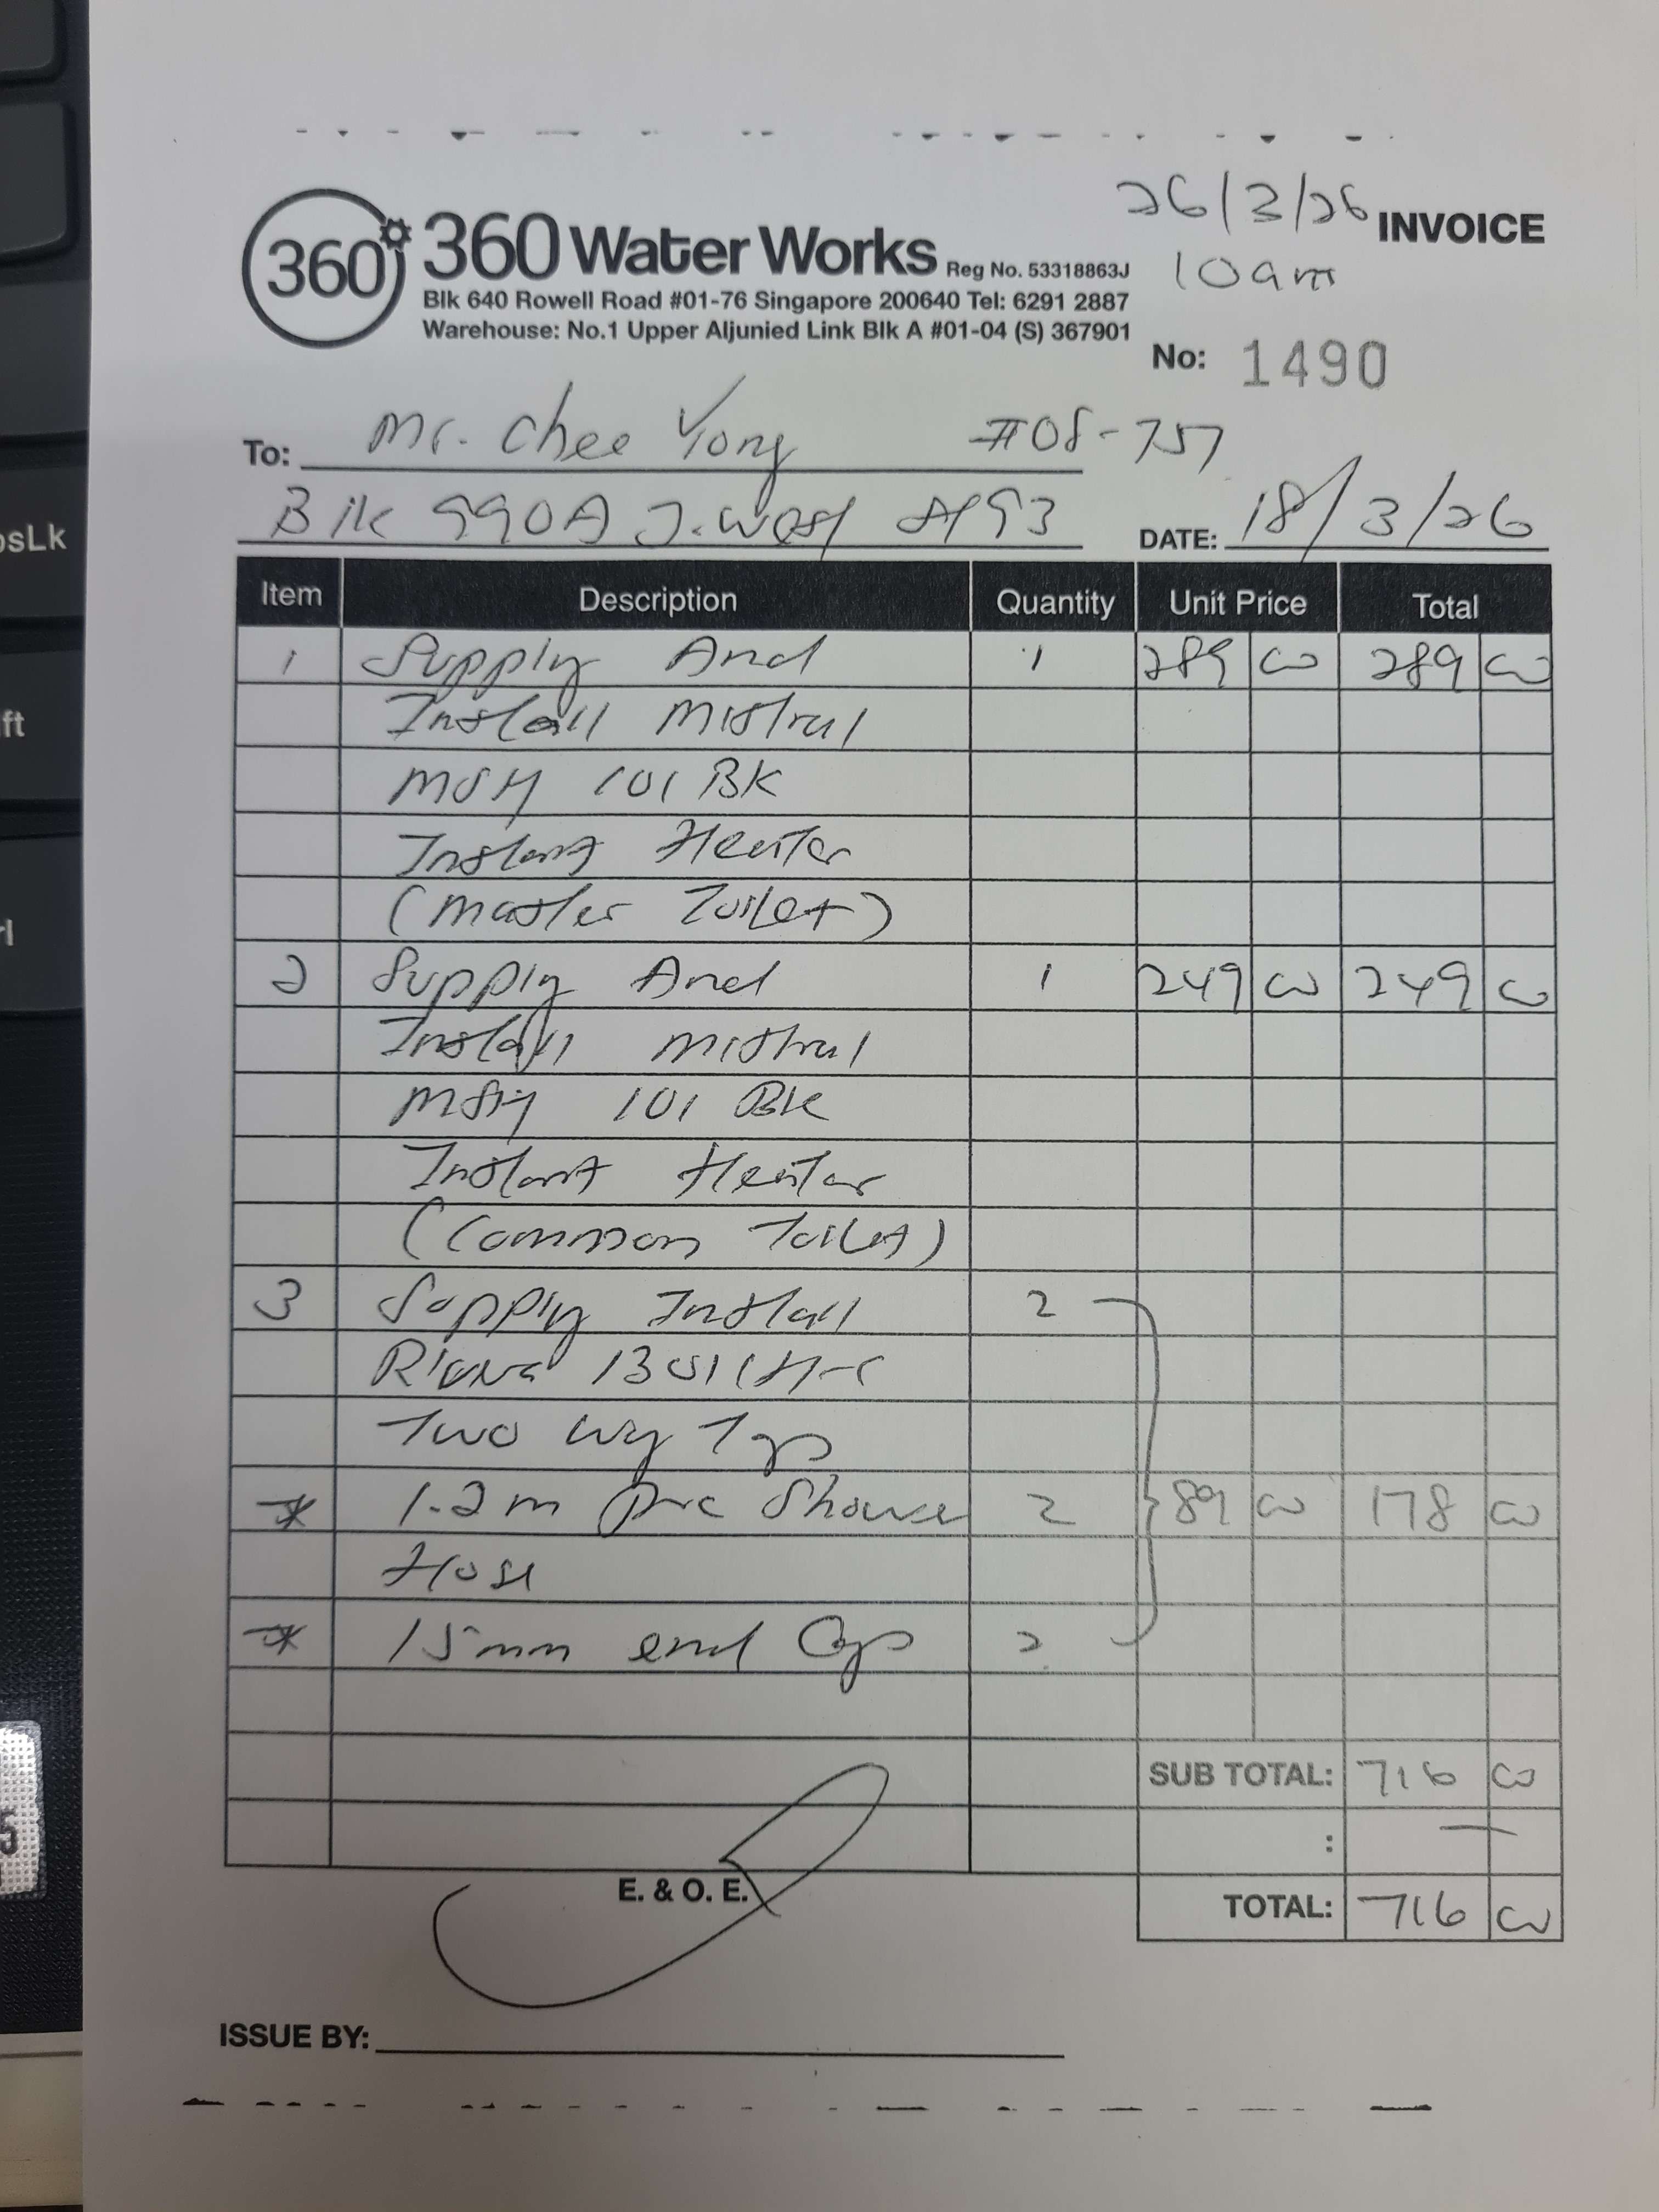 26/3/26
INVOICE
10am
360°
360 Water Works Reg No. 53318863J
Blk 640 Rowell Road #01-76 Singapore 200640 Tel: 6291 2887
Warehouse: No.1 Upper Aljunied Link Blk A #01-04 (S) 367901
No: 1490
To: Mr. Chee Yong #08-757
Blk 990A J. West St 93
DATE: 18/3/26
Item Description Quantity Unit Price Total
1 Supply And 1 289 00 289 00
Install Mistral
MSH 101 BK
Instant Heater
(Master Toilet)
2 Supply And 1 249 00 249 00
Install Mistral
MSH 101 BK
Instant Heater
(Common Toilet)
3 Supply Install 2
Two Way Tap
* 1.2m pvc Shower 2 89 00 178 00
Hose
* 15mm end Cap 2
SUB TOTAL: 716 00
: —
E. & O. E.
TOTAL: 716 00
ISSUE BY:
osLk
ft
rl
5